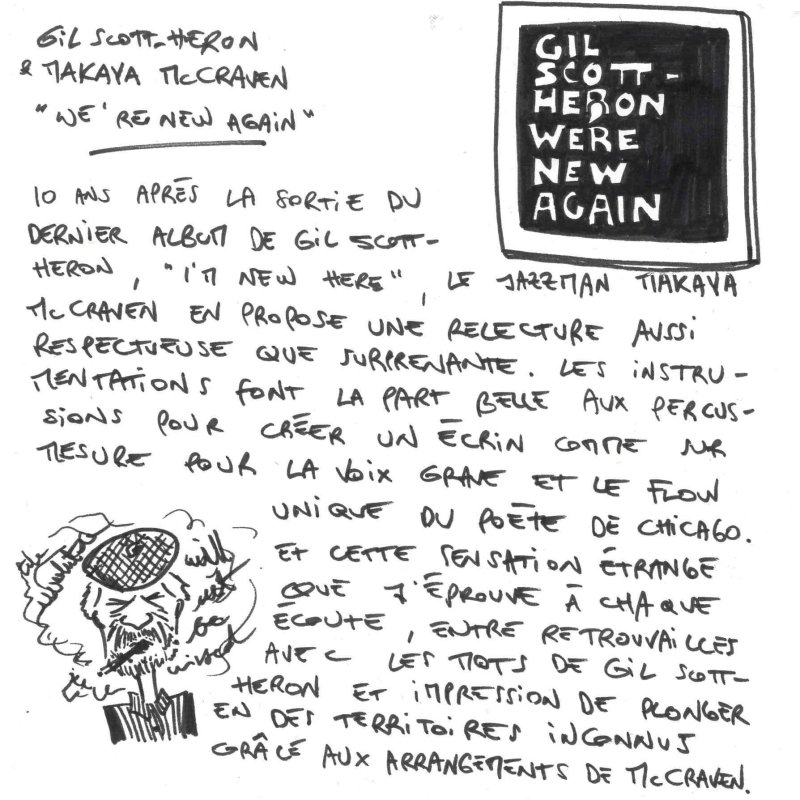 GIL SCOTT-HERON
& MAKAYA McCRAVEN
"WE'RE NEW AGAIN"
GIL
SCOTT-
HERON
WERE
NEW
AGAIN
10 ANS APRÈS LA SORTIE DU
DERNIER ALBUM DE GIL SCOTT-
HERON, "I'M NEW HERE", LE JAZZMAN MAKAYA
McCRAVEN EN PROPOSE UNE RELECTURE AUSSI
RESPECTUEUSE QUE SURPRENANTE. LES INSTRU-
MENTATIONS FONT LA PART BELLE AUX PERCUS-
SIONS POUR CRÉER UN ÉCRIN COMME SUR
MESURE POUR LA VOIX GRAVE ET LE FLOW
UNIQUE DU POÈTE DE CHICAGO.
ET CETTE SENSATION ÉTRANGE
QUE J'ÉPROUVE À CHAQUE
ÉCOUTE, ENTRE RETROUVAILLES
AVEC LES MOTS DE GIL SCOTT-
HERON ET IMPRESSION DE PLONGER
EN DES TERRITOIRES INCONNUS
GRÂCE AUX ARRANGEMENTS DE McCRAVEN.
the revolution will not be televised